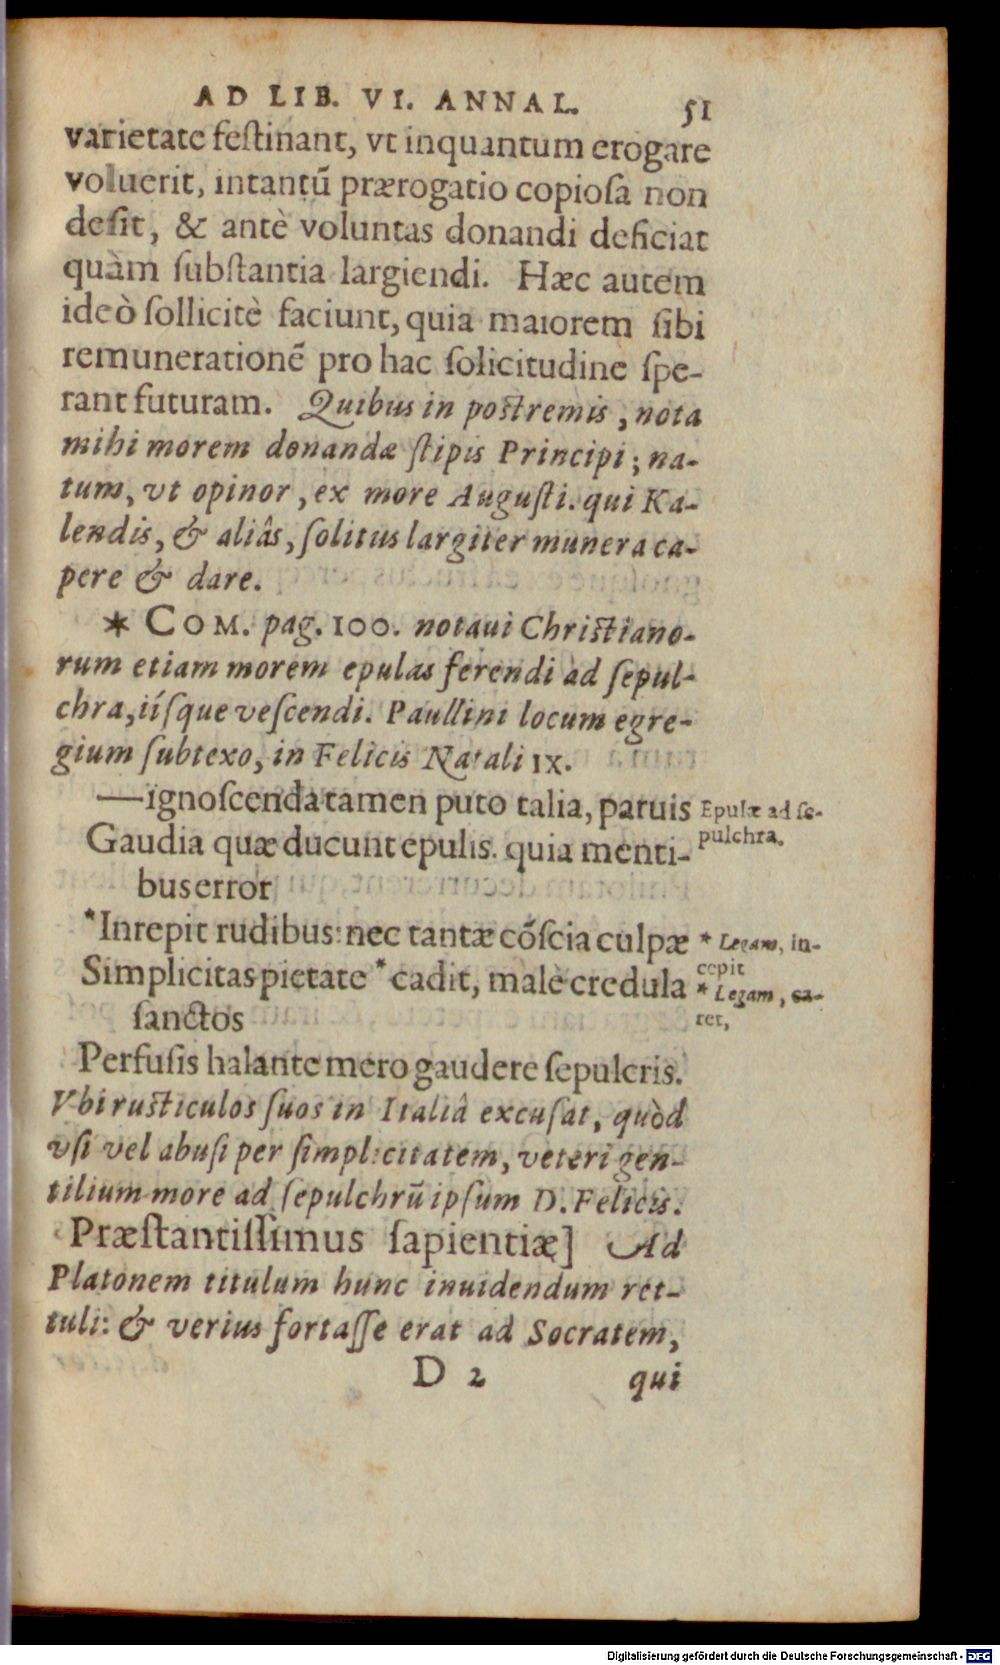 AD LIB. VI. ANNAL. 51
varietate feſtinant, vt inquantum erogare
voluerit, intantũ prærogatio copioſa non
deſit, & antè voluntas donandi deficiat
quàm ſubſtantia largiendi. Hæc autem
ideò ſollicitè faciunt, quia maiorem ſibi
remunerationẽ pro hac ſolicitudine ſpe-
rant futuram. Quibus in poſtremis, nota
mihi morem donandæ ſtipis Principi; na-
tum, vt opinor, ex more Auguſti. qui Ka-
lendis, & aliâs, ſolitus largiter munera ca-
pere & dare.
* COM. pag. 100. notaui Chriſtiano-
rum etiam morem epulas ferendi ad ſepul-
chra, iíſque veſcendi. Paullini locum egre-
gium ſubtexo, in Felicis Natali IX.
—ignoſcenda tamen puto talia, paruis
Epulæ ad ſe-
pulchra.
Gaudia quæ ducunt epulis. quia menti-
bus error
*Inrepit rudibus: nec tantæ cõſcia culpæ
* Legam, in-
cepit
Simplicitas pietate *cadit, malè credula
* Legam, ca-
ret,
ſanctos
Perfuſis halante mero gaudere ſepulcris.
Vbi ruſticulos ſuos in Italiâ excuſat, quòd
vſi vel abuſi per ſimplicitatem, veteri gen-
tilium more ad ſepulchrũ ipſum D. Felicis.
Præſtantiſſimus ſapientiæ] Ad
Platonem titulum hunc inuidendum ret-
tuli: & verius fortaſſe erat ad Socratem,
D 2 qui
Digitalisierung gefördert durch die Deutsche Forschungsgemeinschaft - DFG